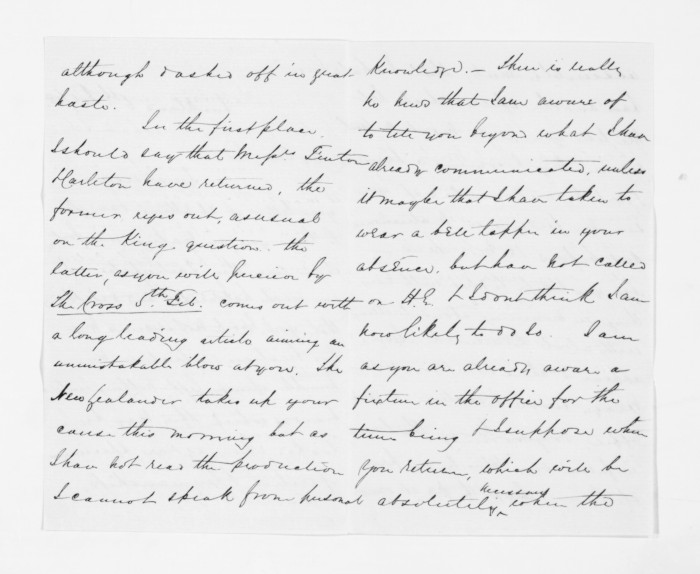 although dashed off in great
haste.
In the first place,
I should say that Messrs Fenton
Harleton have returned, the
former, as usual
on the King question. the
latter, as you will perceive by
The Cross 5th Feb. comes out with
a long leading article aiming an
unmistakable blow at you. The
New Zealander takes up your
cause this morning but as
I have not read the production
I cannot speak from personal
knowledge. — There is really
no news that I am aware of
to tell you beyond what I have
already communicated, unless
it may be that I have taken to
wear a bell topper in your
absence. but have not called
on H.E. & I dont think I am
now likely to do so. I am
as you are already aware a
fixture in the office for the
time being & I suppose when
you return, which will be
absolutely necessary when the